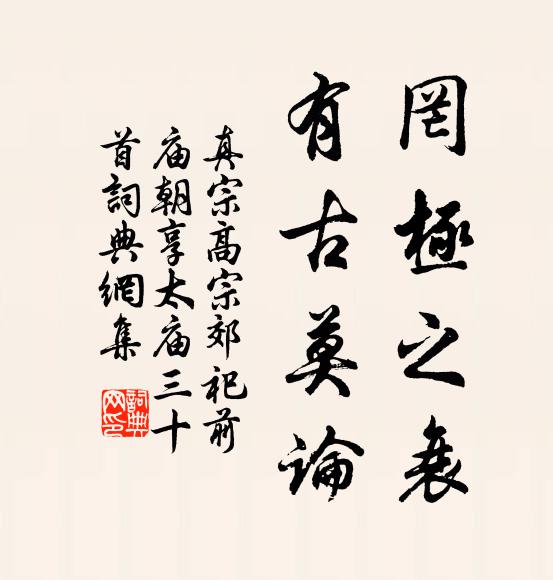 罔極之衷
有古莫論
真宗高宗郊祀前
庙朝享太庙三十
首詞典網集
詞典
网印